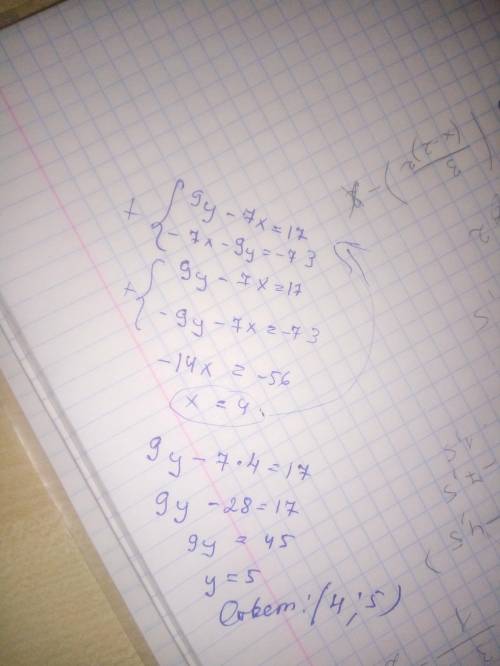 + { 9y - 7x = 17
- 7x - 9y = -73
+ { 9y - 7x = 17
- 9y - 7x = -73
-14x = -56
x = 4.
9y - 7 · 4 = 17
9y - 28 = 17
9y = 45
y = 5
Ответ: (4; 5)